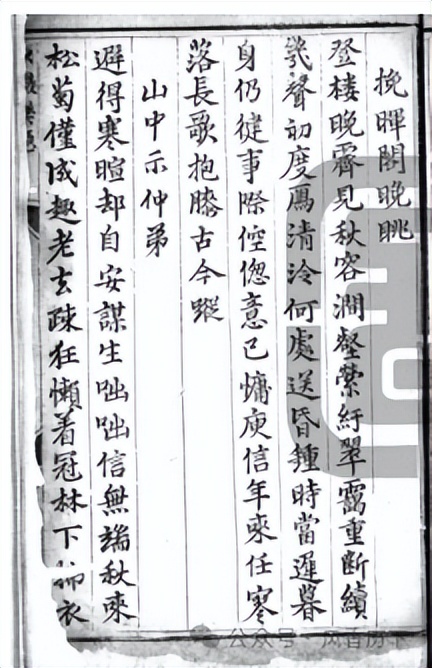 挽暉閣晚眺
登楼晚霽見秋容澗壑縈紆翠靄重斷續
幾聲初度鴈清泠何處送昏鍾時當遲暮
身仍徤事際倥偬意已慵庾信年來任寥
落長歌抱膝古今蹤
山中示仲弟
避得寒暄却自安謀生咄咄信無端秋來
松菊僅成趣老去疎狂懶着冠林下衣
公众号